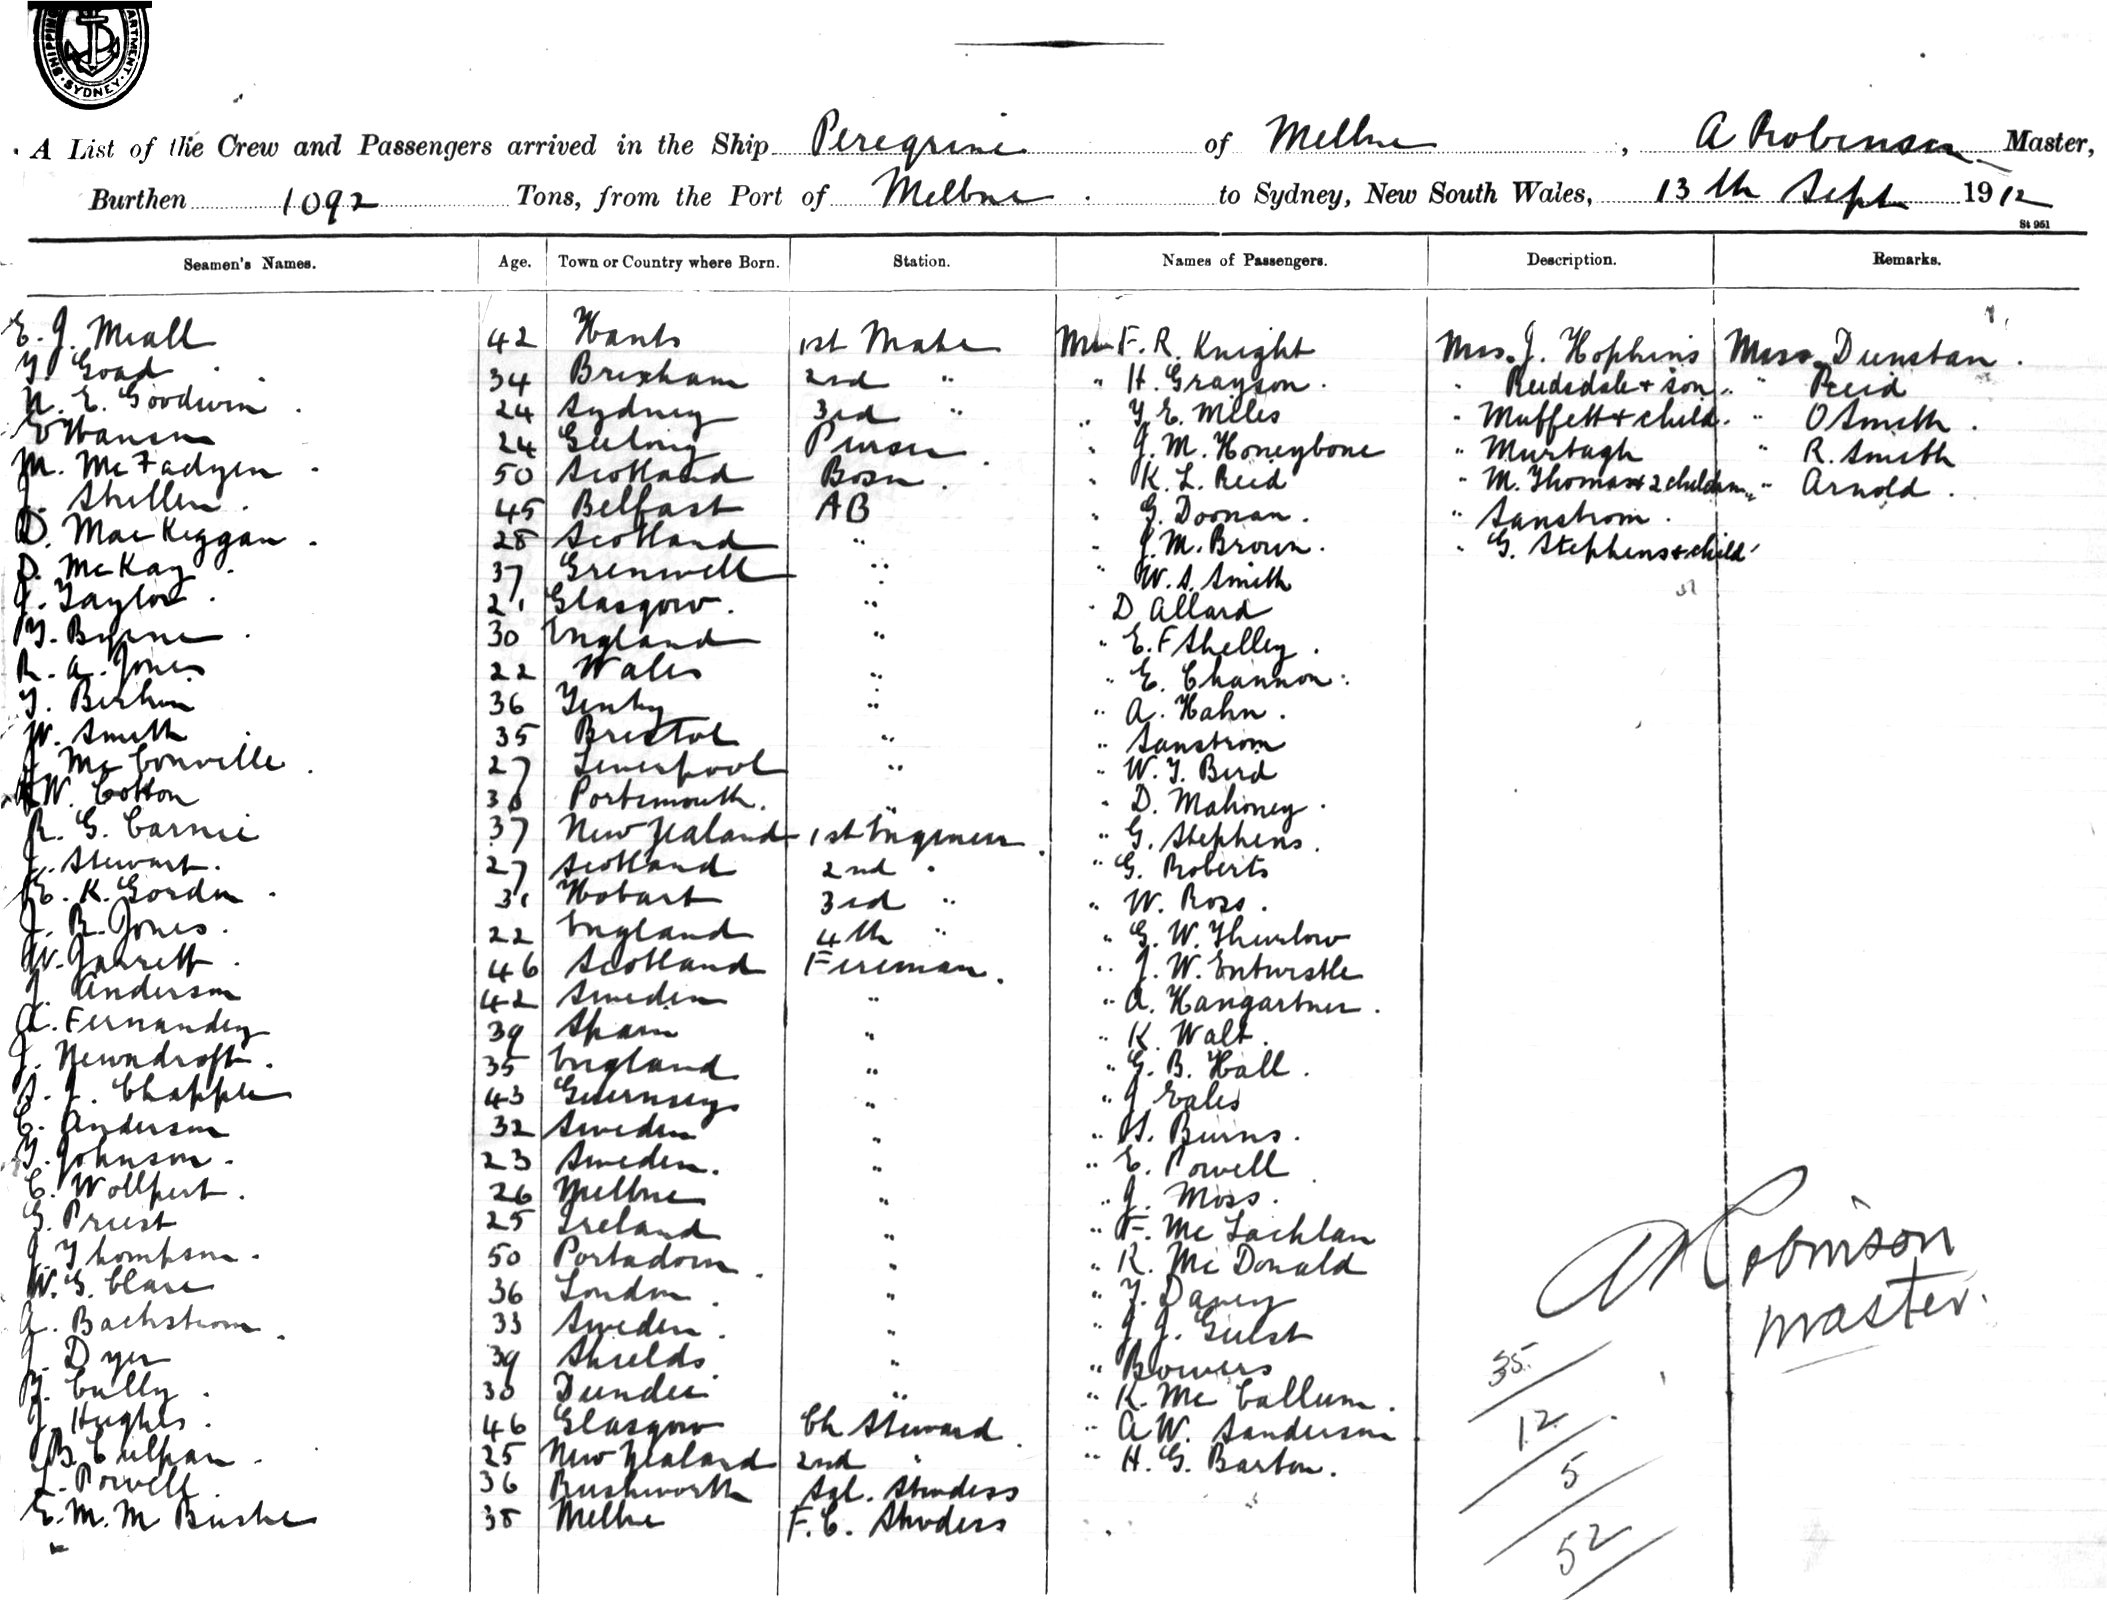 SHIPPING DEPARTMENT · SYDNEY ·
A List of the Crew and Passengers arrived in the Ship Peregrine of Melbne, A Robinson Master,
Burthen 1092 Tons, from the Port of Melbne to Sydney, New South Wales, 13th Sept 1912
St 951
Seamen's Names. Age. Town or Country where Born. Station. Names of Passengers. Description. Remarks.
E. J. Miall 42 Hants 1st Mate Mr F. R. Knight Mrs. J. Hopkins Miss Dunstan.
T. Goad 34 Brixham 2nd " " H. Grayson. " Reidsdale + son " Reid
N. E. Goodwin. 24 Sydney 3rd " " T. E. Miles " Muffett + child. " O Smith.
E Hansen 24 Geelong Purser " J. M. Honeybone " Murtagh " R. Smith
M. McFadyen. 50 Scotland Bosn. " K. L. Reid " M. Thomas + 2 children " Arnold.
J. Skillen. 45 Belfast AB " G. Doonan. " Sanstrom.
D. MacKiggan. 28 Scotland " " J. M. Brown. " G. Stephens + child
D. McKay. 37 " " W. S. Smith
J. Taylor. 21 Glasgow. " " D Allard
T. Byrne. 30 England " " E. F Shelley.
R. A. Jones 22 Wales " " E. Channon.
T. 36 Tenby " " A. Hahn.
W. Smith 35 Bristol " " Sanstrom
J. McConville. 27 Liverpool " " W. T. Bird
W. Cotton Portsmouth. " " D. Mahoney.
R. G. Carnie 37 New Zealand 1st Engineer. " G. Stephens.
J. Stewart. 27 Scotland 2nd " " G. Roberts
E. K. Gordon. 31 Hobart 3rd " " W. Ross.
J. R. Jones. 22 England 4th " " G. W. Thurlow
W. Garrett. 46 Scotland Fireman. " J. W. Entwistle
J. Anderson 42 Sweden " " A. Hangartner.
A. Fernandez 39 Spain " " K. Walt.
J. 35 England " " G. B. Hall.
J. Chapple 43 Guernsey " " J Eales
C. Anderson 32 Sweden " " H. Burns.
T. Johnson. 23 Sweden. " " E. Powell
C. Wollpert. 26 Melbne " " J. Moss.
G. Priest 25 Ireland " " F. McLachlan
J. Thompson. 50 Portadown. " " K. McDonald
W. G. Clare 36 London. " " T. Davey
A. Backstrom. 33 Sweden. " " J. J. Guest
J. Dyer 39 Shields " " Bowers
Cully. 30 Dundee " " K. McCallum.
J. Hughes. 46 Glasgow Ch Steward. " A. W. Sanderson
B. Culpan. 25 New Zealand 2nd " " H. G. Barton.
L. Powell. 36 Rushworth Sgl. Stwdess
E. M. M 38 Melbne F. C. Stwdess
A Robinson
Master.
35
12
5
52